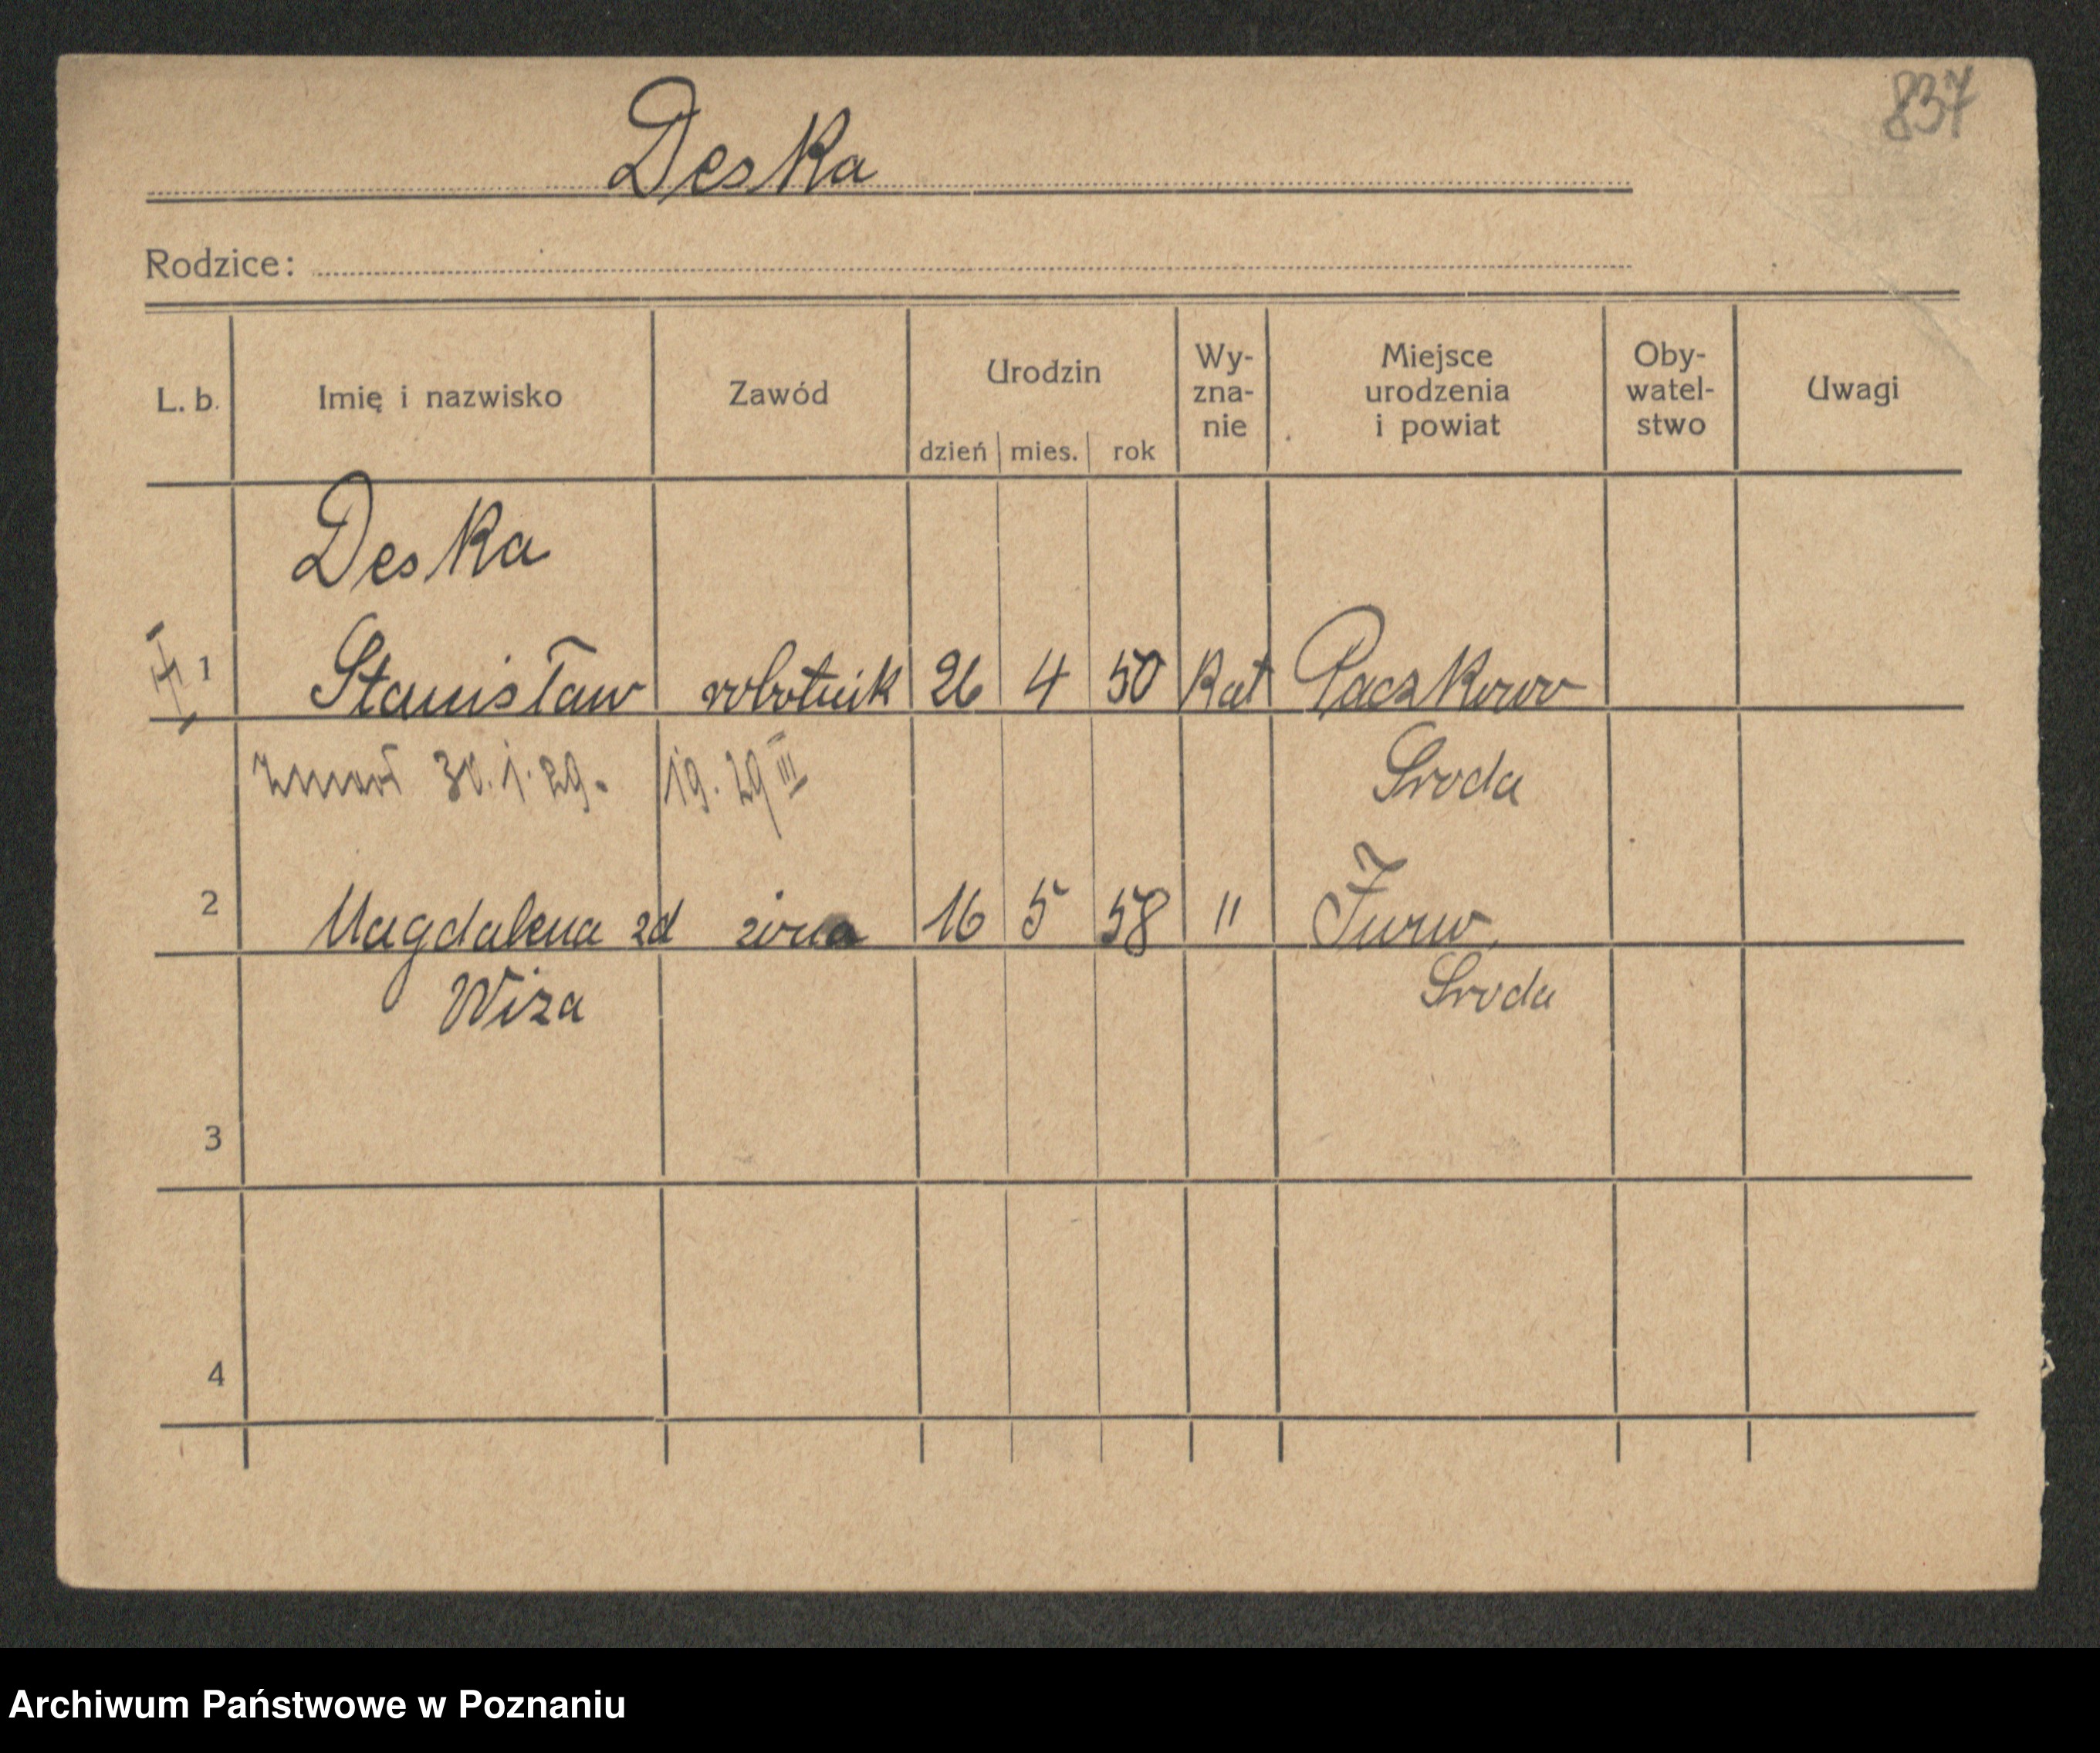 837
Deska
Rodzice:
L. b. Imię i nazwisko Zawód Urodzin dzień mies. rok Wy-zna-nie Miejsce urodzenia i powiat Oby-watel-stwo Uwagi
Deska
1 Stanisław robotnik 26 4 50 Kat Paczkowo
zmarł 30.1.29. 19.29 III Sroda
2 Magdalena zd żona 16 5 58 " 
Wiza Sroda
3
4
Archiwum Państwowe w Poznaniu